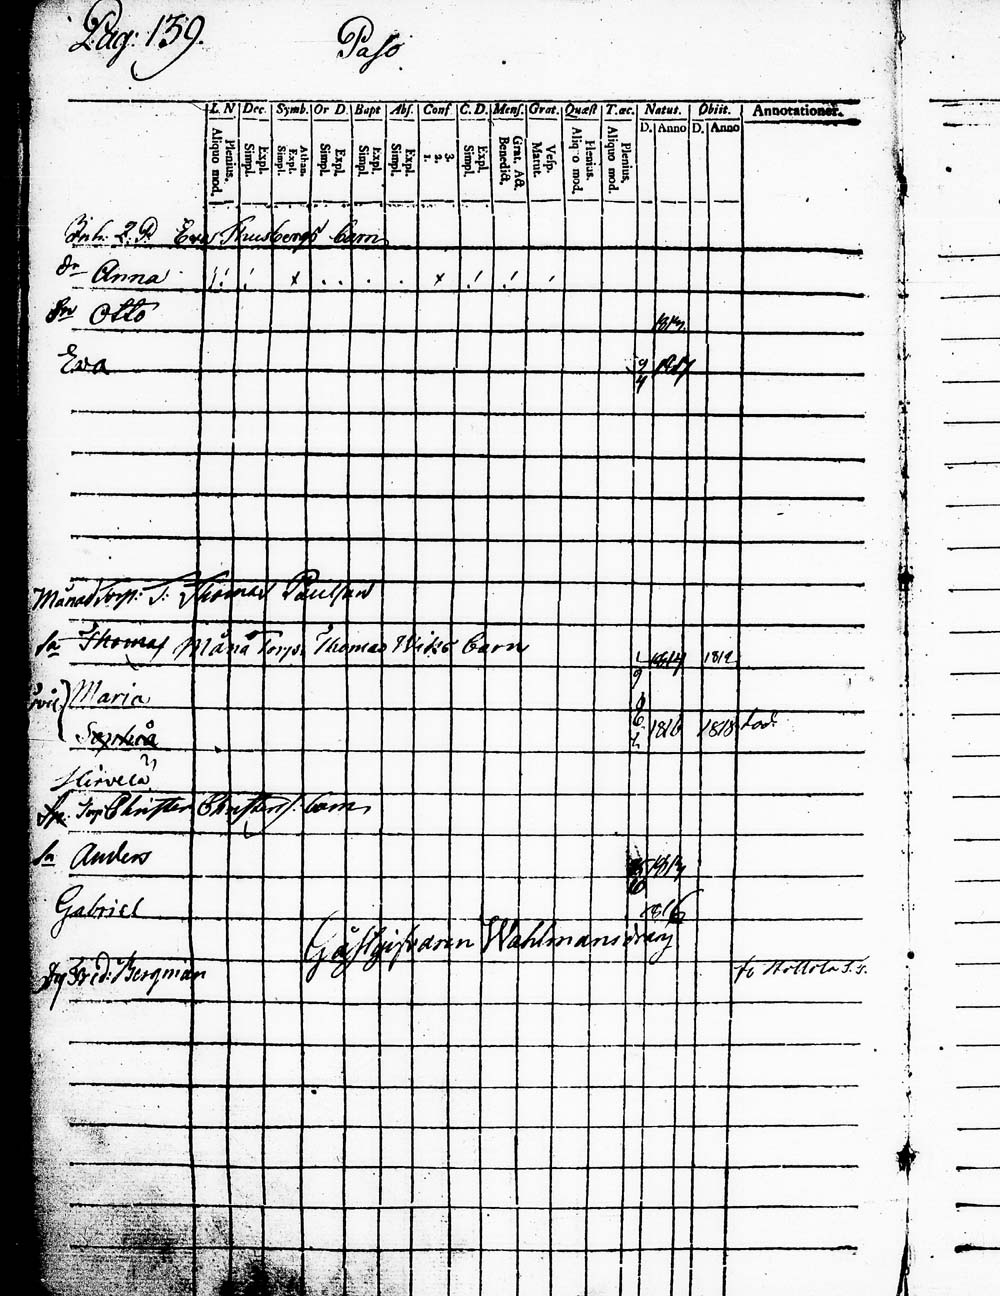 Pag: 139. Paso
L. N Dec. Symb. Or D. Bapt Abs. Conf C. D. Mens. Grat. Quæst T. æc. Natus. Obiit. Annotationer.
Plenius. Aliquo mod. Expl. Simpl. Athan. Expl. Simpl. Expl. Simpl. Expl. Simpl. Expl. Simpl. 3. 2. 1. Expl. Simpl. Grat. Act. Benedict. Vesp. Matut. Plenius. Aliquo mod. Plenius. Aliquo mod. D. Anno D. Anno
Inh. 2. P. Eva barn
dr Anna
Sn Otto 1813.
Eva 9/4 1817
Månad Torp: S: Thomas Paulson
Sn Thomas Måna Torp. Thomas Wiks barn 1/9 1814 1819
Maria
Sophia 1816 1818 död.
Hirvelä
Torp Christer Christers: barn
Sn Anders 1813
Gabriel 1816
Gästgifvaren Wahlmans dräng
Dg Fred: Bergman to Hollola